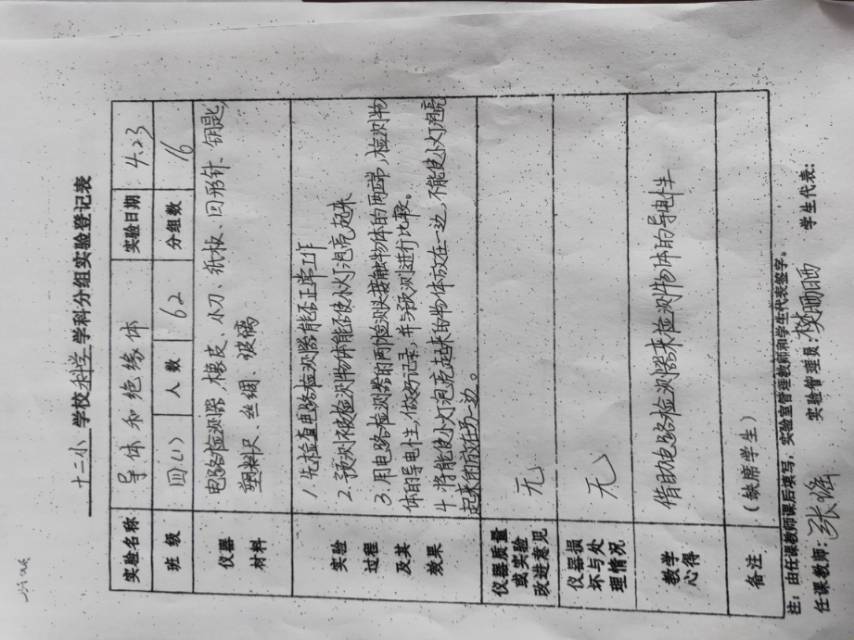 十二小 学校 科学 学科分组实验登记表
实验名称 导体和绝缘体 实验日期 4.23
班级 四(1) 人数 62 分组数 16
仪器材料 电路检测器、橡皮、小刀、纸板、回形针、钥匙、
塑料尺、丝绸、玻璃
实验过程及其效果
1. 先检查电路检测器能否正常工作
2. 预测被检测物体能否使小灯泡亮起来
3. 用电路检测器的两个检测头接触物体的两端,检测物
体的导电性,做好记录,并与预测进行比较。
4. 将能使小灯泡亮起来的物体放在一边,不能使小灯泡亮
起来的放在另一边。
仪器质量或实验改进意见 无
仪器损坏与处理情况 无
教学心得 借助电路检测器来检测物体的导电性
备注 (缺席学生)
注:由任课教师课后填写,实验室管理教师和学生代表签字。
任课教师: 张 实验管理员: 樊 学生代表: